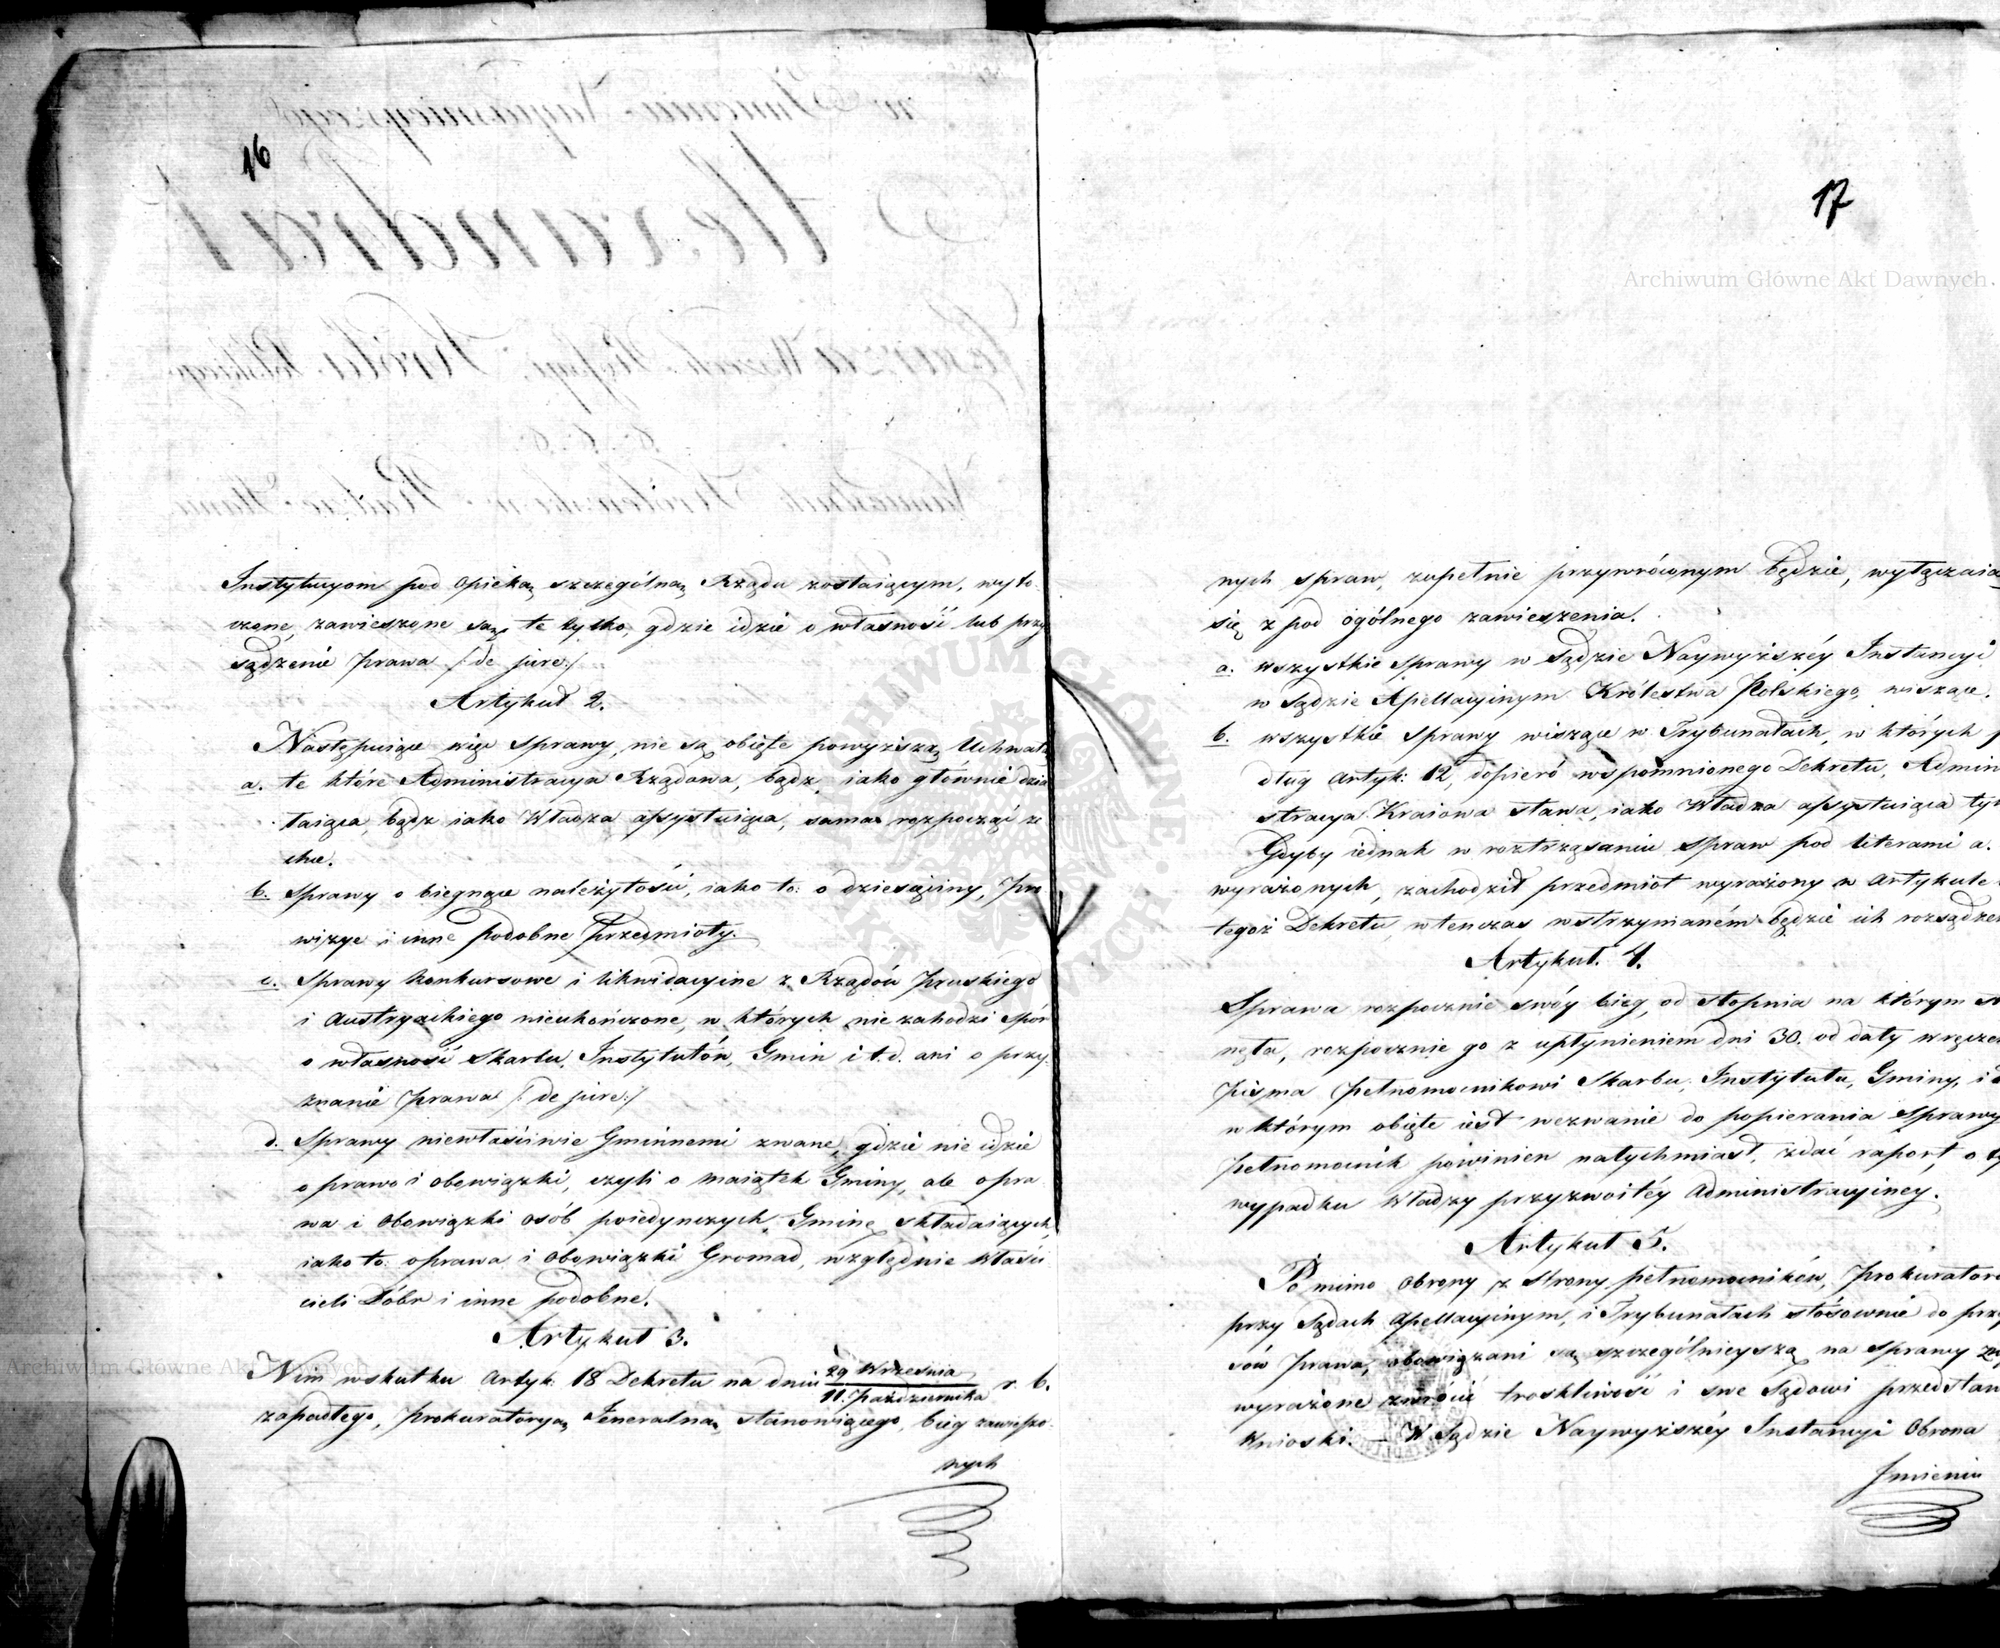 16
Instytucyom pod opieką szczególną Rządu zostaiącym, wyto-
czone, zawieszone są te tylko, gdzie idzie o własność lub przy
sądzenie prawa /: de jure :/
Artykuł 2.
Następuiące więc sprawy, nie są obięte powyższą Uchwałą
a. te które Administracya Rządowa, bądź iako głównie dzia
łaiąca, bądź iako Władza assystuiąca, sama rozpocząć ze
chce.
b. Sprawy o biegnące należytości, iako to: o dziesięciny, pro
wizye i inne podobne Przedmioty.
c. Sprawy konkursowe i likwidacyine z Rządów Pruskiego
i Austryackiego nieukończone, w których nie zachodzi spór
o własność Skarbu, Instytutów, Gmin i t. d. ani o przy-
znanie prawa /: de jure :/
d. Sprawy niewłaściwie Gminnemi zwane, gdzie nie idzie
o prawo i obowiązki, czyli o maiątek Gminy, ale o pra
wa i obowiązki osób poiedynczych Gminę składaiących,
iako to: o prawa i obowiązki Gromad, względnie Właści
cieli Dóbr i inne podobne.
Artykuł 3.
Nim w skutku Artyk: 18 Dekretu na dniu 29 Września / 11 Października r. b.
zapadłego, Prokuratoryą Jeneralną stanowiącego, bieg zawieszo-
nych
17
Archiwum Główne Akt Dawnych
nych spraw, zupełnie przywróconym będzie, wyłączaią
się z pod ogólnego zawieszenia.
a. wszystkie sprawy w Sądzie Naywyższéy Instancyi
w Sądzie Apellacyinym Królestwa Polskiego, wiszące.
b. wszystkie sprawy wiszące w Trybunałach, w których p
dług Artyk: 12, dopiero wspomnionego Dekretu, Admin
stracya Kraiowa stawa, iako Władza assystuiąca ty
Gdyby iednak w roztrząsaniu spraw pod literami a.
wyrażonych, zachodził przedmiot wyrażony w Artykule
tegoż Dekretu, wtenczas wstrzymaném będzie ich rozsądze
Artykuł. 4.
Sprawa rozpocznie swóy bieg, od stopnia na którym st
nęła, rozpocznie go z upłynieniem dni 30. od daty wręcze
pisma pełnomocnikowi Skarbu, Instytutu, Gminy, i
w którym obięte iest wezwanie do popierania Sprawy
Pełnomocnik powinien natychmiast, zdać raport, o ty
wypadku Władzy przyzwoitéy Administracyiney.
Artykuł 5.
Pomimo obrony z strony pełnomocników, Prokurator
przy Sądach Apellacyinym, i Trybunałach stósownie do prze
sów Prawa, obowiązani są szczególnieyszą na sprawy
wyrażone zwrócić troskliwość i swe Sądowi przedstaw
wnioski. – W Sądzie Naywyższéy Instancyi Obrona
Imieniu
Archiwum Główne Akt Dawnych